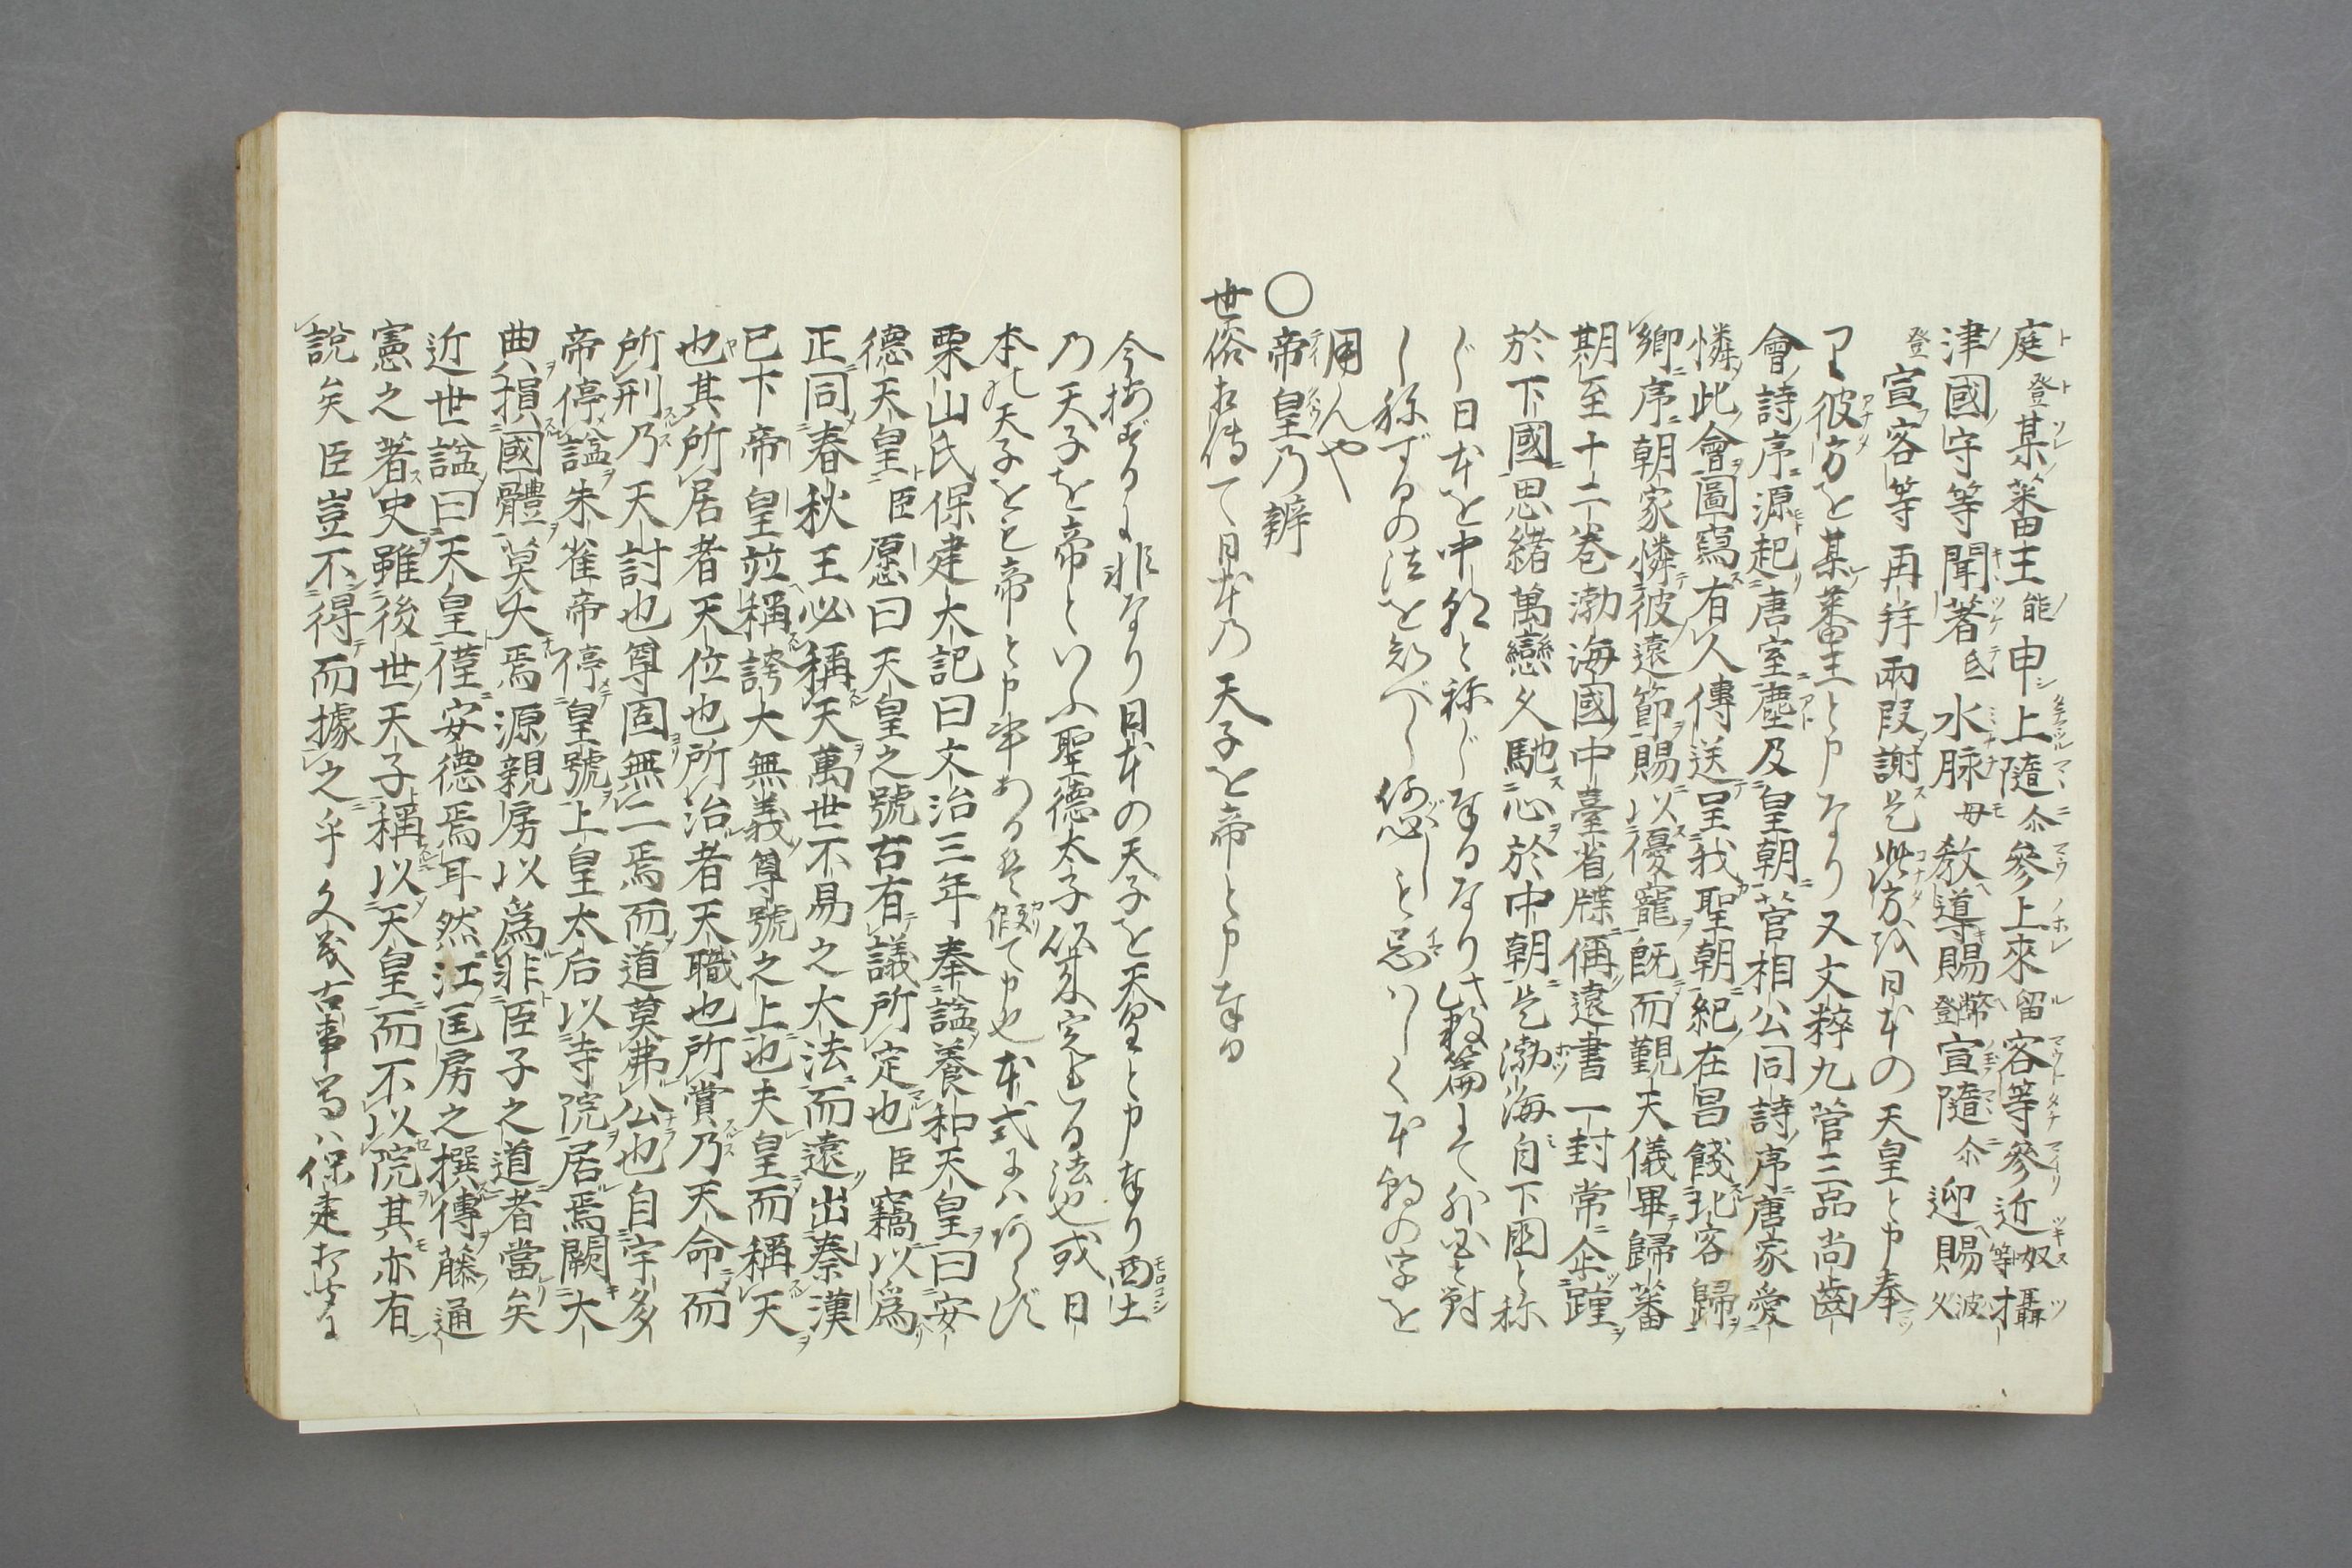 庭登某蕃王能申上隨尓參上來留客等參近奴等攝
津國守等聞著氐水脉母敎導賜幣登宣隨尓迎賜波久
登宣客等再拜兩段謝
彼方を某蕃王と申なり又文粹九菅三品尚齒
會詩序源起唐室塵及皇朝菅相公同詩序唐家愛
憐此會圖寫有人傳送呈我聖朝紀在昌餞北客歸
鄉序朝家憐彼遠節賜以優寵既而覲天儀畢歸蕃
期至十二卷渤海國中臺省牒偁遠書一封常企踵
於下國思緒萬戀久馳心於中朝是渤海自下國と称
じ日本を中朝と称じ奉るなり
し称ずるの法を知べし
用んや
○帝皇乃辨
世俗お傳て日本乃天子を帝と申奉る
今按ずるに非なり日本の天子を天皇と申奉り西土
乃天子を帝といふ聖德太子以來定れる法也或日
本の天子をも帝と申事あるは假て申也本式には
栗山氏保建大記曰文治三年奉謚養和天皇曰安
德天皇臣愿曰天皇之號古有議所定也臣竊以爲
正同春秋王必稱天萬世不易之大法而遠出秦漢
已下帝皇竝稱誇大無義尊號之上也夫皇而稱天
也其所居者天位也所治者天職也所賞乃天命而
所刑乃天討也尊固無二焉而道莫弗公也自宇多
帝停謚朱雀帝停皇號上皇太后以寺院居焉闕大
典損國體莫大焉源親房以爲非臣子之道者當矣
近世謚曰天皇僅安德焉耳然江匡房之撰傳藤通
憲之著史雖後世天子稱以天皇而不以院其亦有
說矣臣豈不得而據之乎